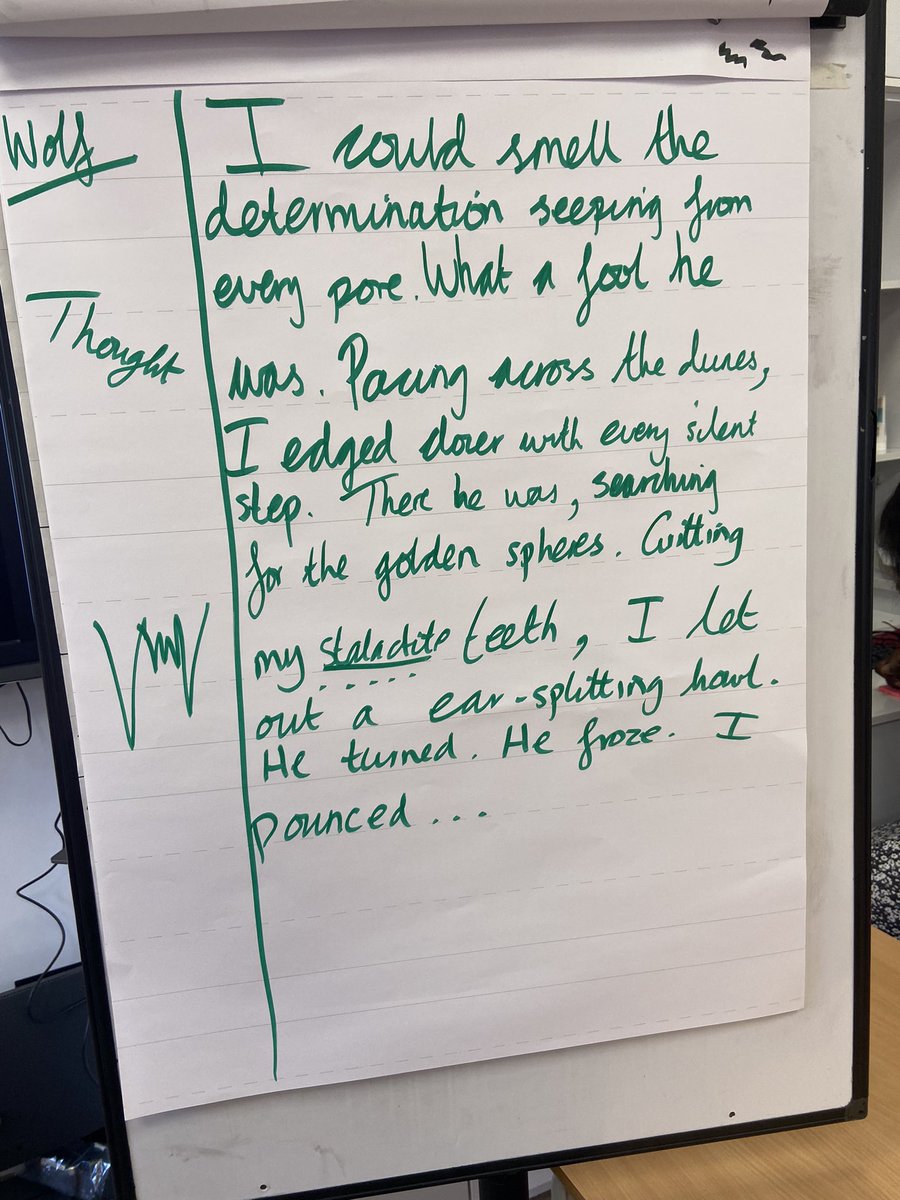 Wolf
Thought
I could smell the
determination seeping from
every pore. What a fool he
was. Pacing across the dunes,
I edged closer with every silent
step. There he was, searching
for the golden spheres. Gritting
my stalactite teeth, I let
out a ear-splitting howl.
He turned. He froze. I
pounced...